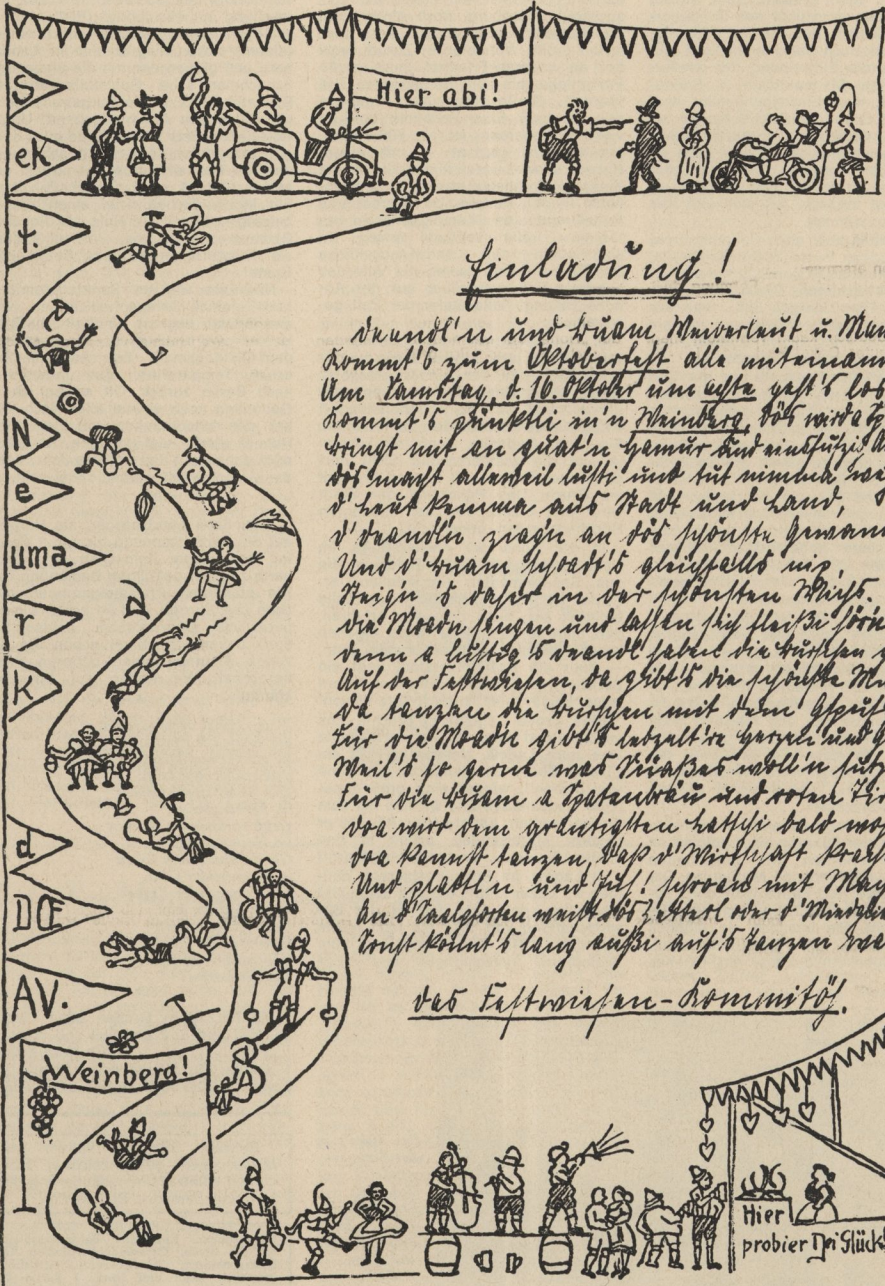 Hier abi!
S
ek
t.
N
e
uma
r
k
d
DŒ
AV.
Einladung!
Deandl'n und Buam, Weiberleut u. Man
Kommt's zum Oktoberfest alle miteinam
Am Samstag, d. 16. Oktober um achte geht's los
Kommt's pünktli in'n Weinberg, dös wird a
Bringt mit an guat'n Hamur und
dös macht alleweil lusti und tut nimma we
D' Leut kemma aus Stadt und Land,
D' Deandl'n ziag'n an dös schönste Gewan
Und d' Buam schoadt's gleichfalls nix,
Steig'n 's daher in der schönsten Wichs.
Die Moadn singen und lassen sich fleißi
denn a lustig's Deandl haben die Burschen
Auf der Festwiesen, da gibt's die schönste Mu
Da tanzen die Burschen mit dem Gspus
Für die Moad'n gibt's lebzelt're Herzen und
Weil's so gerne was Süaßes woll'n
Für die Buam a Spatenbräu und roten Tir
Doa wird dem grantigsten Hatschi bald
Doa kannst tanzen, daß d' Wirtschaft krach
Und plattl'n und Juh! schroan mit
An d' Saalpforten weist dös Zetterl oder d'
Sonst könnt's lang außi auf's Tanzen wa
Das Festwiesen-Kommitöh.
Weinberg!
Hier
probier Dei Glück